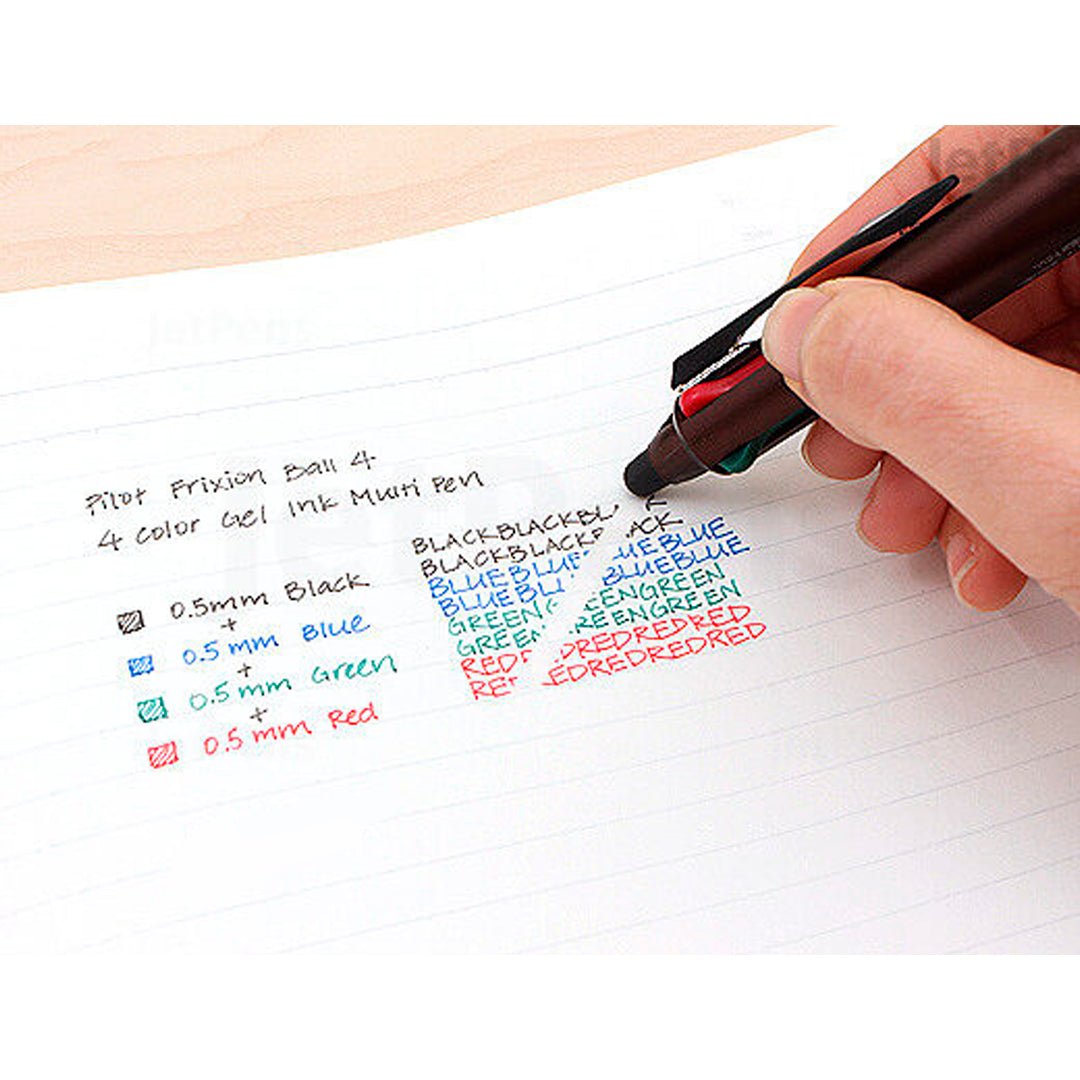 Pilot Frixion Ball 4
4 Color Gel Ink Multi Pen
0.5mm Black
+
0.5mm Blue
+
0.5mm Green
+
0.5mm Red
BLACKBLACKBL K
BLACKBLACK ACK
BLUEBLUE UEBLUE
BLUEBLU BLUEBLUE
GREEN EENGREEN
GREEN REENGREEN
RED REDREDRED
RE EDREDREDRED
JetPens